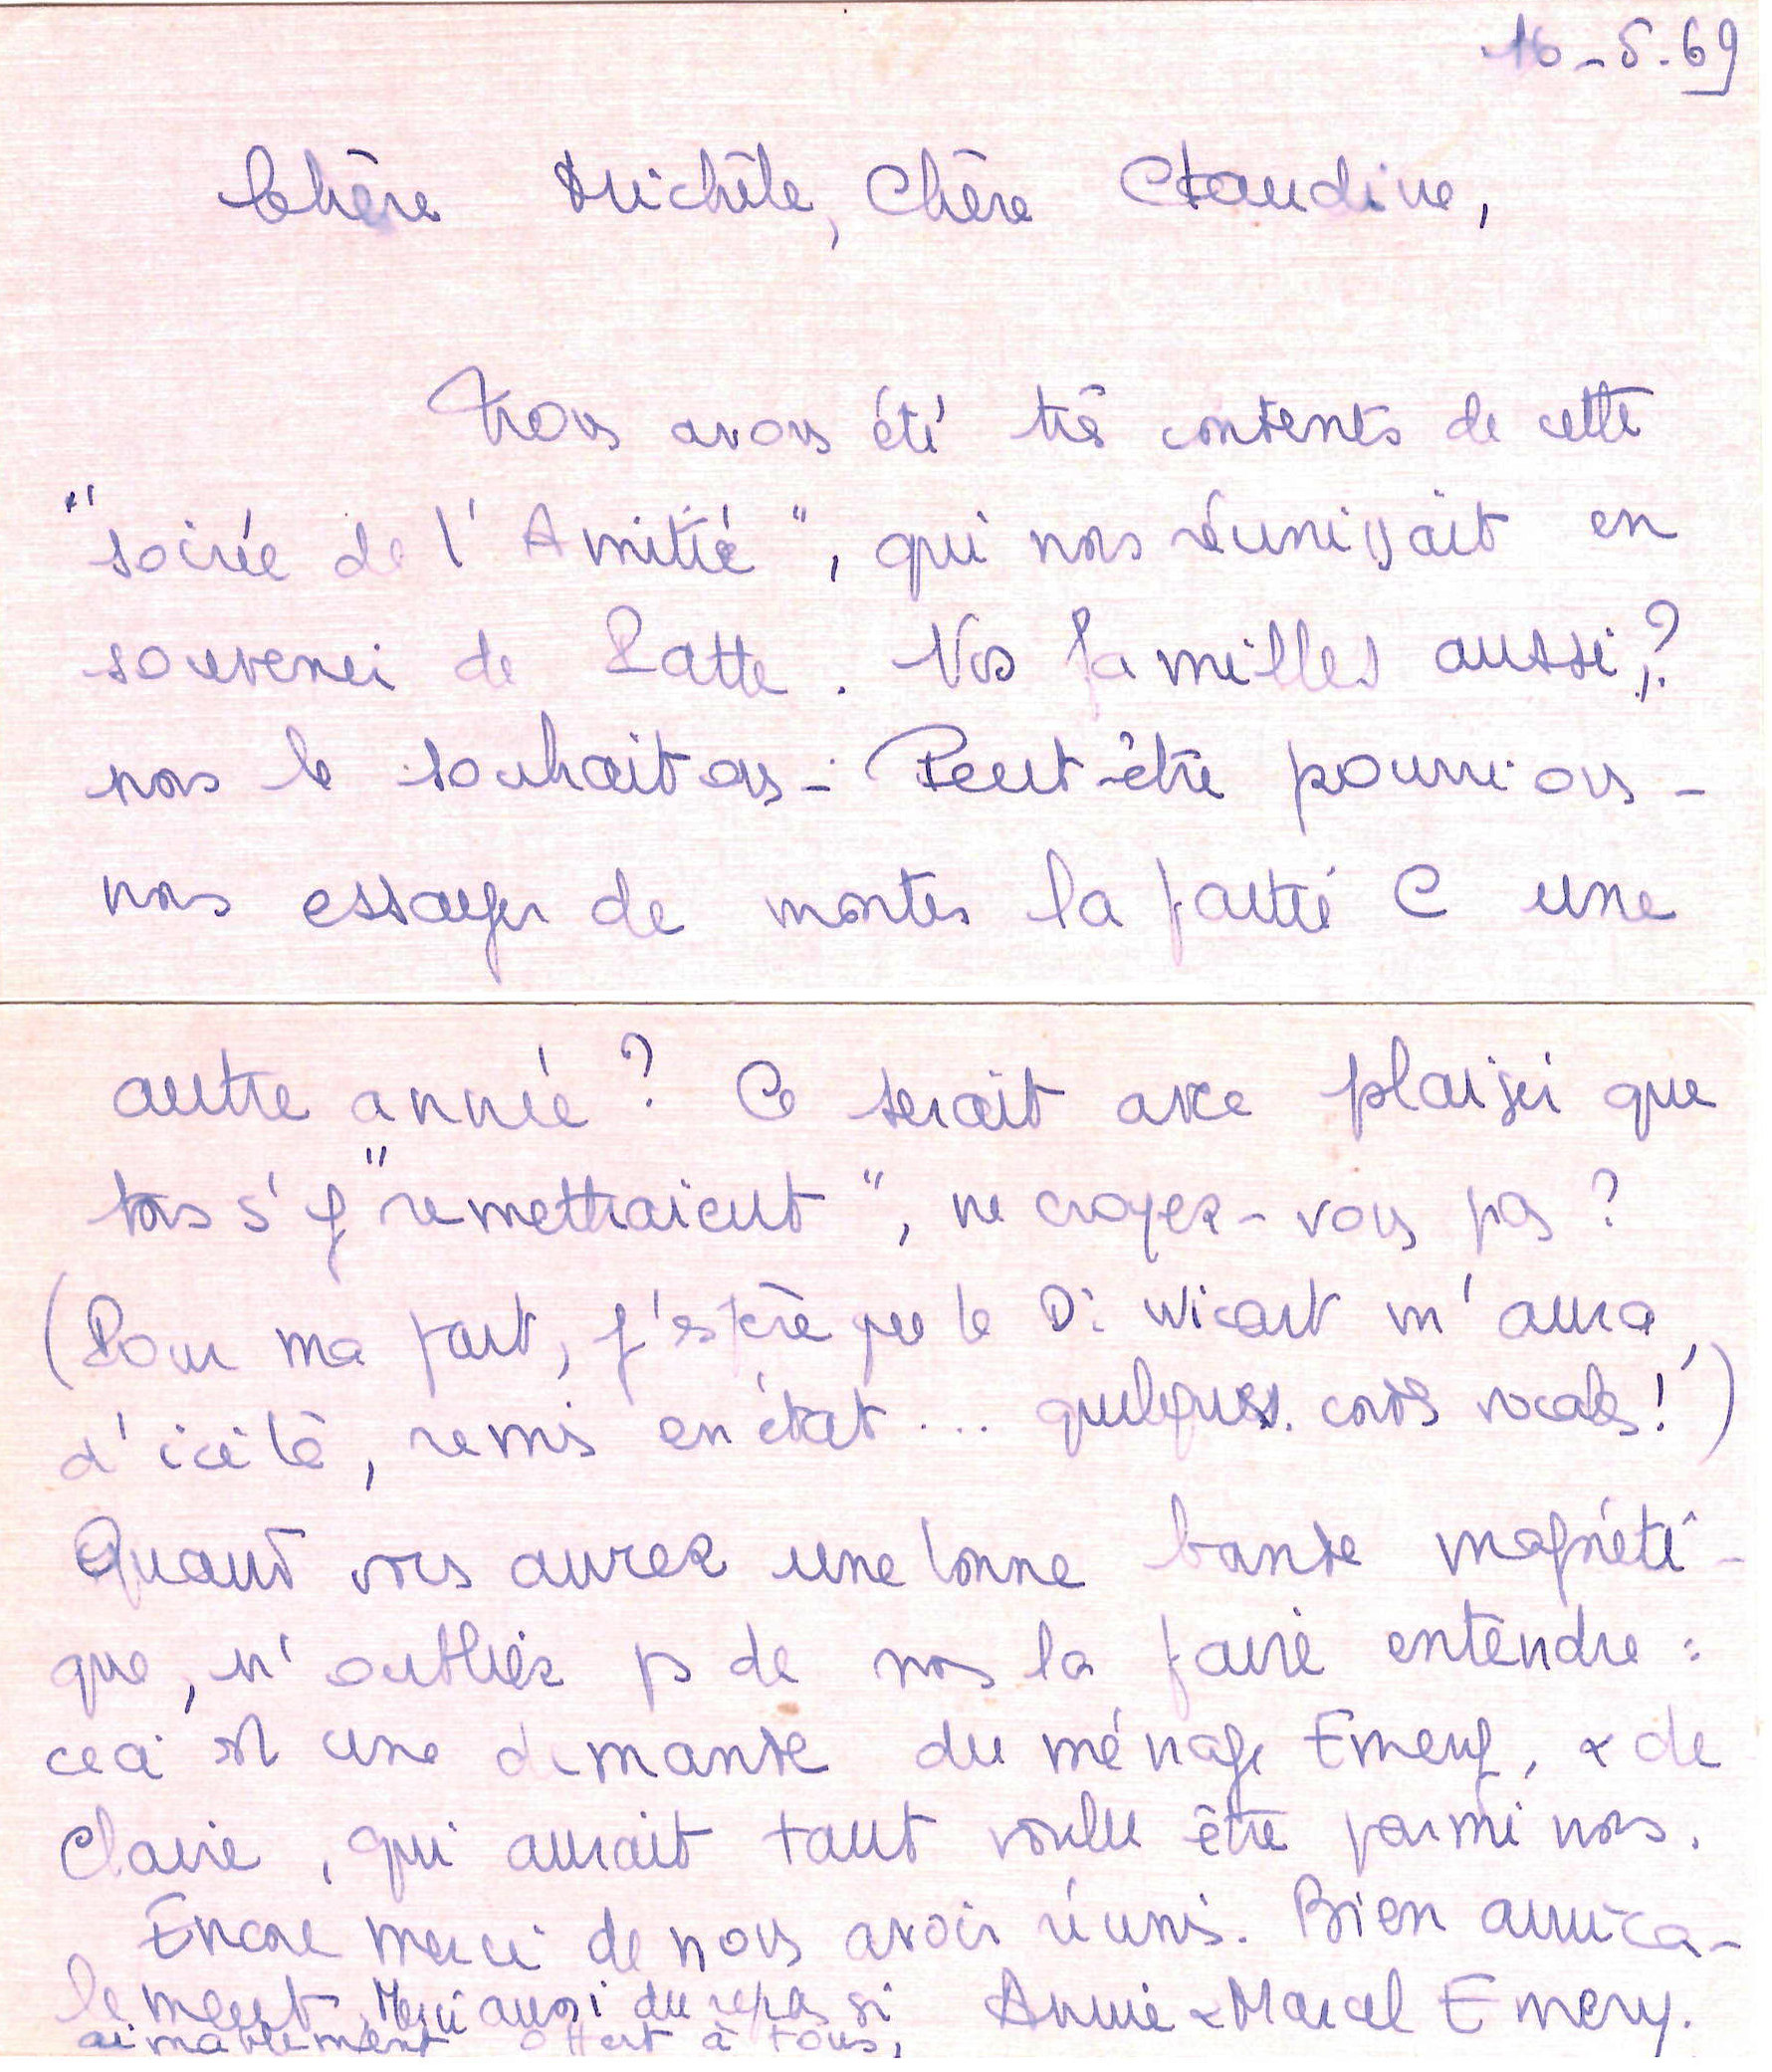 16-5-69
Chère Michèle, Chère Claudine,
Nous avons été très contents de cette
"soirée de l'Amitié", qui nous réunissait en
souvenir de Ratte. Vos familles aussi,?
nous le souhaitons - Peut-être pourrions-
nous essayer de monter la partie C une
autre année ? Ce serait avec plaisir que
tous s'y "remettraient", ne croyez-vous pas ?
(Pour ma part, j'espère que le Dr Wicart m'aura,
d'ici là, remis en état ... quelques cordes vocales !)
Quand vous aurez une bonne bande magnéti-
que, n'oubliez ps de nous la faire entendre :
ceci est une demande du ménage Emery, & de
Claire, qui aurait tant voulu être parmi nous.
Encore merci de nous avoir réunis. Bien amica-
lement. Merci aussi du repas si
aimablement offert à tous,
Annie & Marcel Emery.